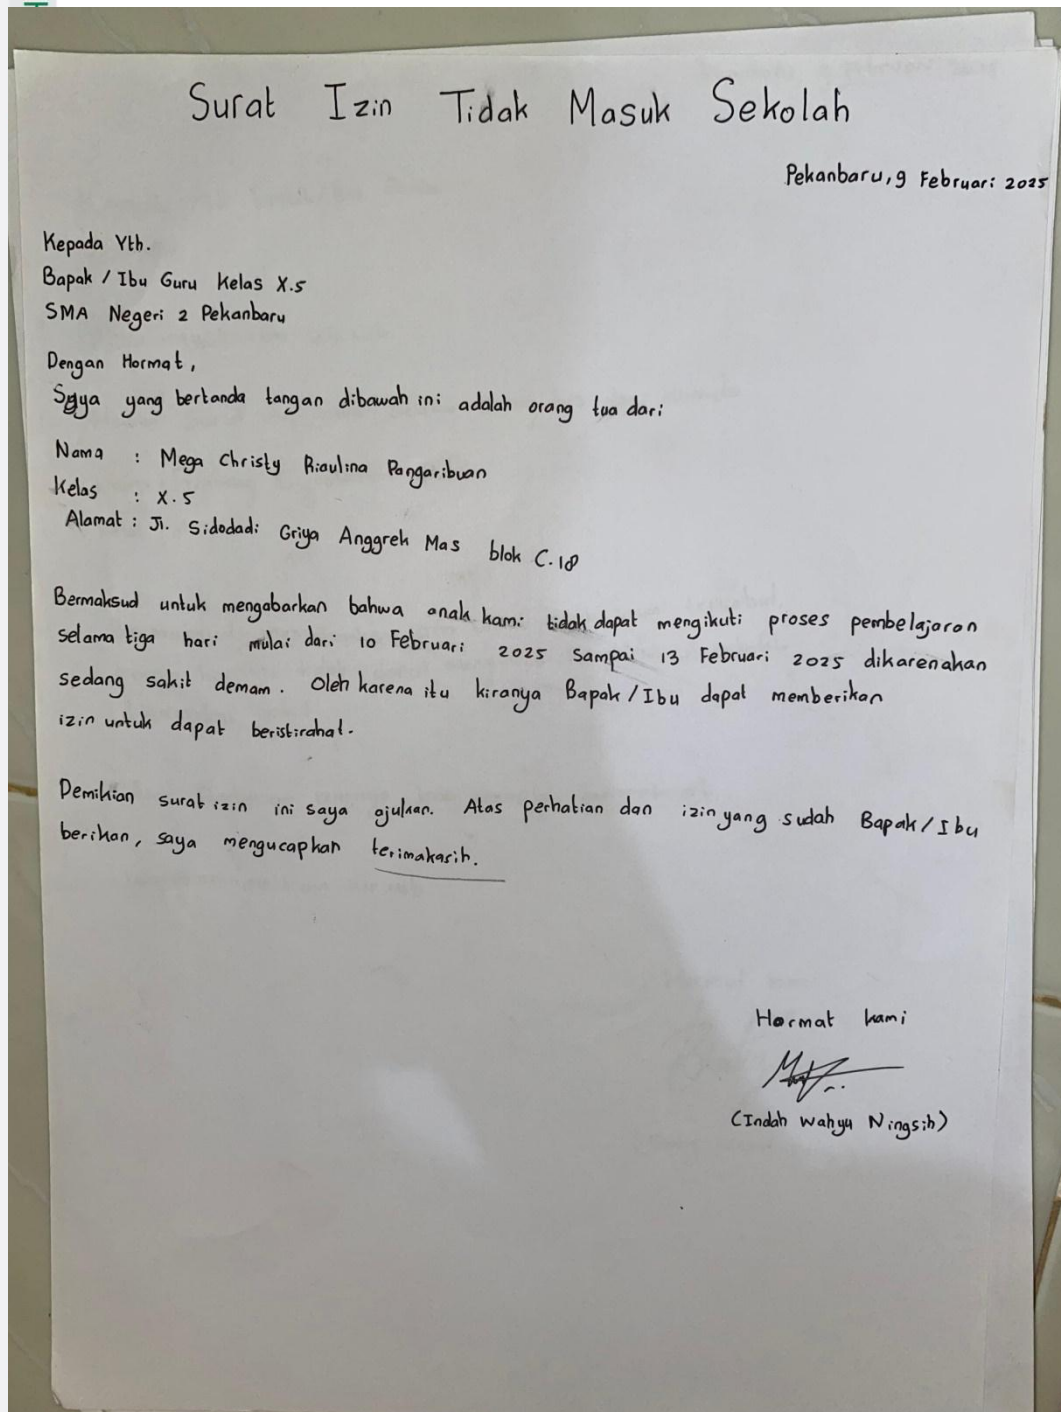 Surat Izin Tidak Masuk Sekolah
Pekanbaru, 9 Februari 2025
Kepada Yth.
Bapak / Ibu Guru Kelas X.5
SMA Negeri 2 Pekanbaru
Dengan Hormat,
Saya yang bertanda tangan dibawah ini adalah orang tua dari
Nama : Mega Christy Riaulina Pangaribuan
Kelas : X.5
Alamat : Jl. Sidodadi Griya Anggrek Mas blok C.18
Bermaksud untuk mengabarkan bahwa anak kami tidak dapat mengikuti proses pembelajaran
selama tiga hari mulai dari 10 Februari 2025 sampai 13 Februari 2025 dikarenakan
sedang sakit demam. Oleh karena itu kiranya Bapak/Ibu dapat memberikan
izin untuk dapat beristirahat.
Demikian surat izin ini saya ajukan. Atas perhatian dan izin yang sudah Bapak/Ibu
berikan, saya mengucapkan terimakasih.
Hormat kami
(Indah Wahyu Ningsih)